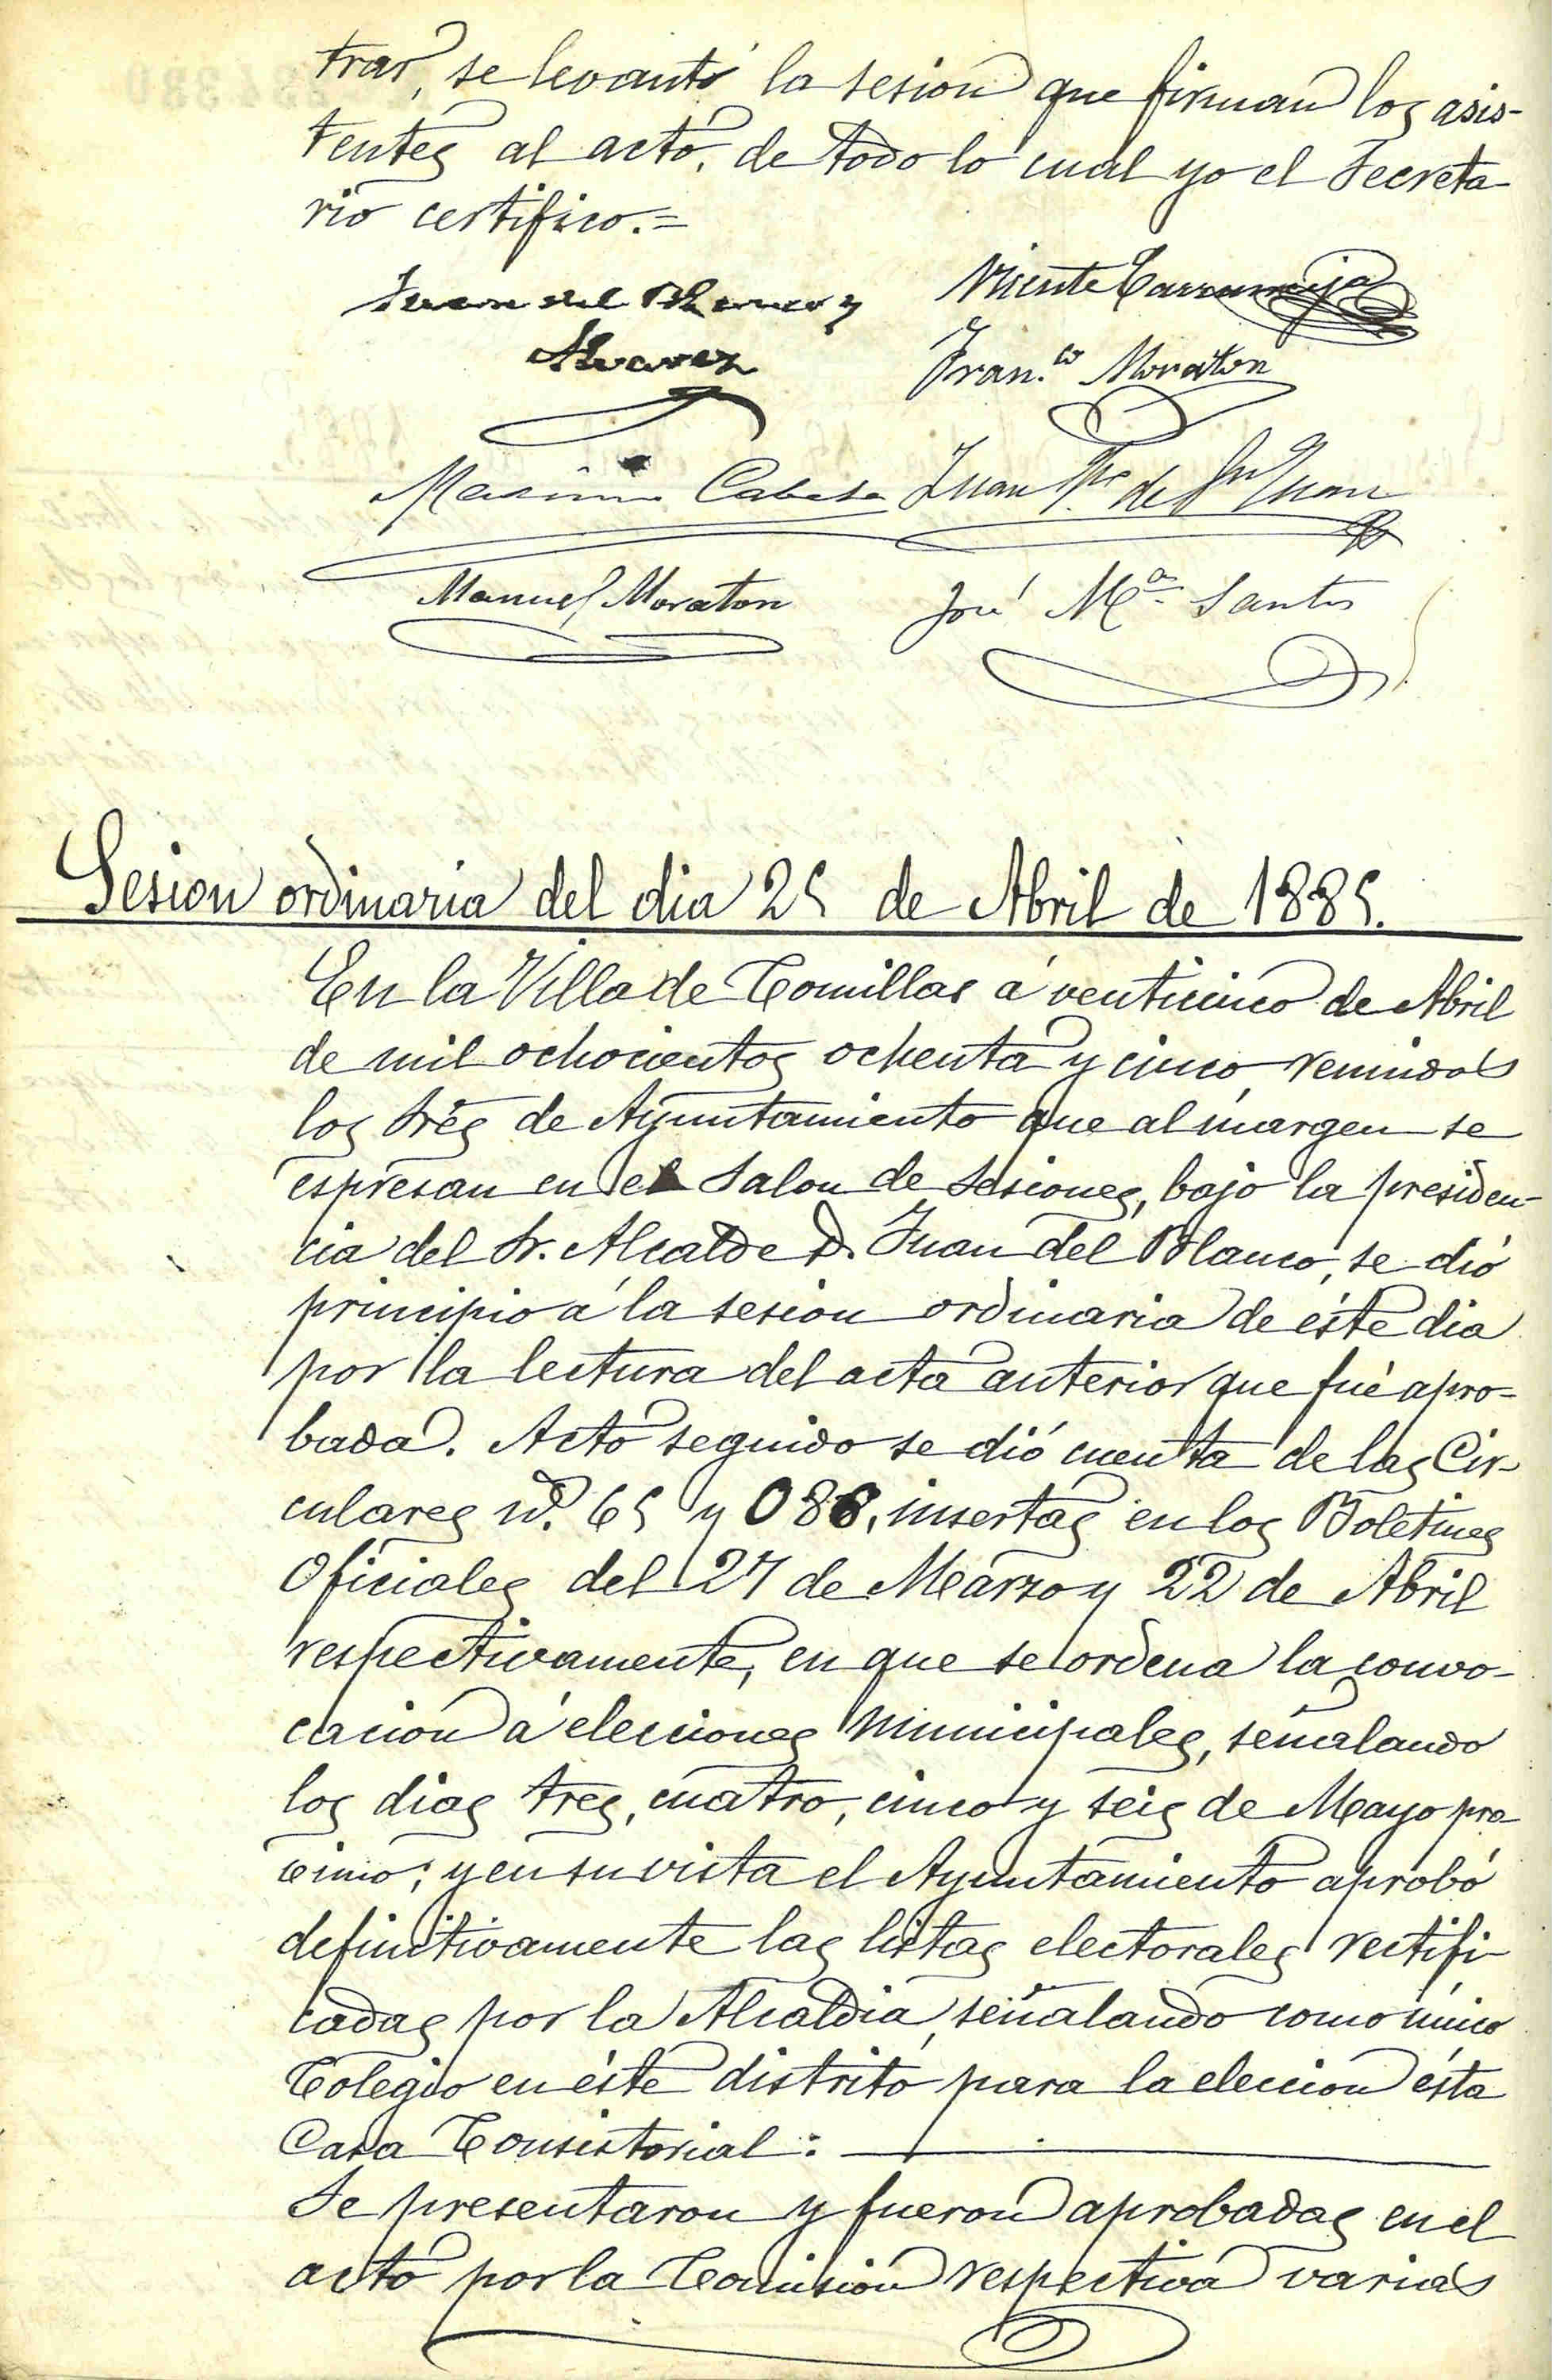 trar, se levantó la sesion que firman los asis-
tentes al acto, de todo lo cual yo el Secreta-
rio certifico.=
Juan del Blanco y
Alvarez
Vicente
Fran.co Moraton
Maximino Cabeza
Juan de Sn Juan
Manuel Moraton
José Mª Santos
Sesion ordinaria del dia 25 de Abril de 1885.
En la Villa de Comillas á venticinco de Abril
de mil ochocientos ochenta y cinco, reunidos
los Srés de Ayuntamiento que al márgen se
espresan en el Salon de Sesiones, bajo la presiden-
cia del Sr. Alcalde D. Juan del Blanco, se dió
principio á la sesion ordinaria de éste dia
por la lectura del acta anterior que fué apro-
bada. Acto seguido se dió cuenta de las Cir-
culares nº. 65 y 088, insertas en los Boletines
Oficiales del 27 de Marzo y 22 de Abril
respectivamente, en que se ordena la convo-
cacion á elecciones Municipales, señalando
los dias tres, cuatro, cinco y seis de Mayo pro-
cimo; y en su vista el Ayuntamiento aprobó
definitivamente las listas electorales rectifi-
cadas por la Alcaldia, señalando como único
Colegio en éste distrito para la eleccion ésta
Casa Consistorial:
Se presentaron y fueron aprobadas en el
acto por la Comision respectiva varias